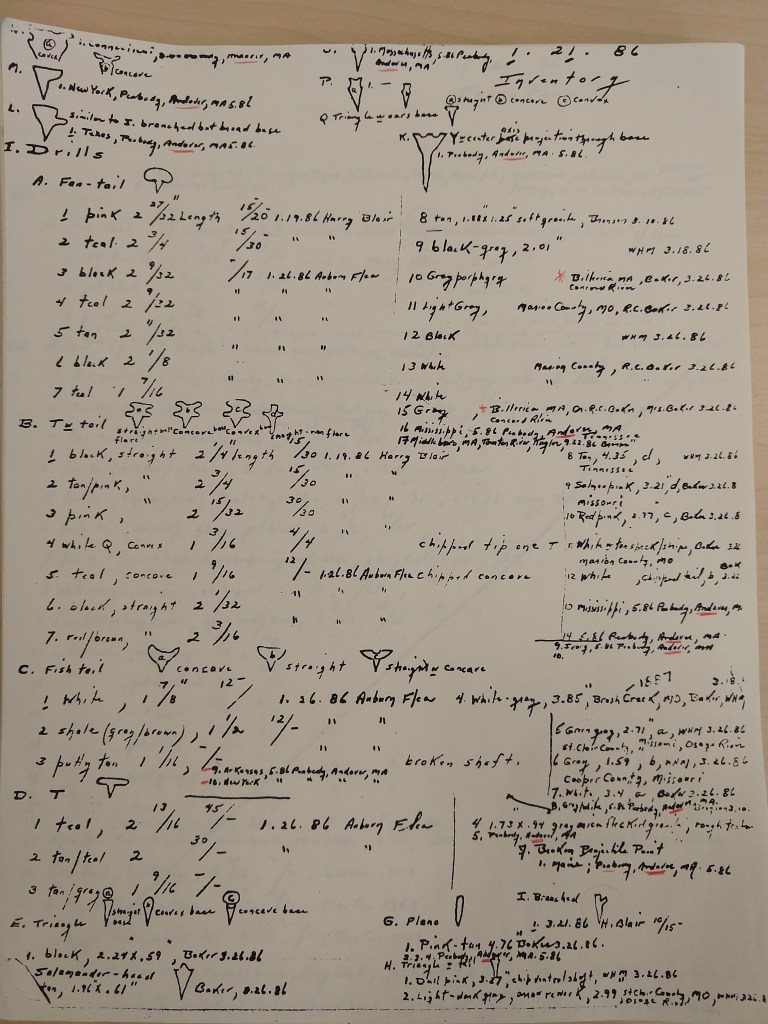 1. Connecticut, Peabody, Andover, MA
b concave
J. 1. Massachusetts, 5.86 Peabody, Andover, MA
1. 21. 86
Inventory
M. 1. New York, Peabody, Andover, MA 5.86
P. a 1. —
a straight b concave c convex
L. similar to I. branched but broad base
1. Texas, Peabody, Andover, MA 5.86.
Q Triangle w ears base
K. Y = center axis projection through base
1. Peabody, Andover, MA. 5.86.
I. Drills
A. Fan-tail
1 pink 2 27/32" Length 15/20 1.19.86 Harry Blair
2 teal 2 3/4 15/30 " "
3 black 2 9/32 -/17 1.26.86 Auburn Flea
4 teal 2 9/32 " "
5 tan 2 11/32 " "
6 black 2 1/8 " "
7 teal 1 7/16 " "
8 tan, 1.88 x 1.25" soft granite, Bronson 3.10.86
9 black-gray, 2.01" WHM 3.18.86
10 Gray porphyry * Billerica, MA, Baker, 3.26.86
Concord River
11 Light Gray, Marion County, MO, R.C. Baker 3.26.86
12 Black WHM 3.26.86
13 White Marion County, R.C. Baker 3.26.86
14 White "
15 Gray, * Billerica, MA, R.C. Baker, Mrs. Baker 3.26.86
Concord River
16 Mississippi, 5.86 Peabody, Andover, MA
17 Middleboro, MA, Taunton River, 9.22.86
B. T w tail a b c d
straight w flare concave convex straight-non flare
1 black, straight 2 1/4" length 15/30 1.19.86 Harry Blair
2 tan/pink, " 2 3/4 15/30 " "
3 pink, " 2 15/32 30/30 " "
4 white Q, convex 1 3/16 4/4 " " chipped tip one T
5. teal, concave 1 9/16 12/- 1.26.86 Auburn Flea chipped concave
6. black, straight 2 1/32 " "
7. red/brown, " 2 3/16 " "
Tennessee
8 Tan, 4.35, d, WHM 3.26.86
Tennessee
9 Salmon pink, 3.21", d, Baker 3.26.8
Missouri
10 Red pink, 2.77, c, Baker 3.26.8
11 White w tan speck/stripe, Baker 3.26
Marion County, MO
12 White, chipped tail, b, 3.26
13 Mississippi, 5.86 Peabody, Andover, M
14 5.86 Peabody, Andover, MA.
C. Fishtail a concave b straight c straight w concave
1 White, 1 7/8" 12- 1. 26. 86 Auburn Flea
2 shale (gray/brown), 1 1/2 12/- " "
3 putty tan 1 1/16, -/- " " broken shaft.
9. Arkansas, 5.86 Peabody, Andover, MA
10. New York " " "
4. White-gray, 3.85", Brosh Creek, MO, Baker, WHM 3.18.
1887
5 Green gray, 2.71", a, WHM 3.26.86
St. Clair County, Missouri, Osage River
6 Gray, 1.59, b, WHM, 3.26.86
Cooper County, Missouri
7. White, 3.4, a, Baker 3.26.86
8. Gray/white, 5.86 Peabody, Andover, MA.
D. T
1 teal, 2 13/16 45/- 1.26.86 Auburn Flea
2 tan/teal 2 30/- " "
3 tan/gray 1 9/16 -/-
4 1.73 x .94 gray mica flecked granite, rough
5. Peabody, Andover, MA
J. Broken Projectile Point
1. Maine; Peabody, Andover, MA. 5.86
E. Triangle a straight base b convex base c concave base
1. black, 2.24 x .59", Baker 3.26.86
Salamander-head
tan, 1.96 x .61" Baker, 3.26.86
I. Branched
1. 3.21.86 H. Blair 10/15-
G. Plano
1. Pink-tan 4.76 Baker 3.26.86.
2.3.4. Peabody, Andover, MA. 5.86
H. Triangle w tail
1. Dull pink, 3.27" chip distal shaft, WHM 3.26.86
2. Light-dark gray, 2.99 St Clair County, MO, WHM 3.26.8
Osage River